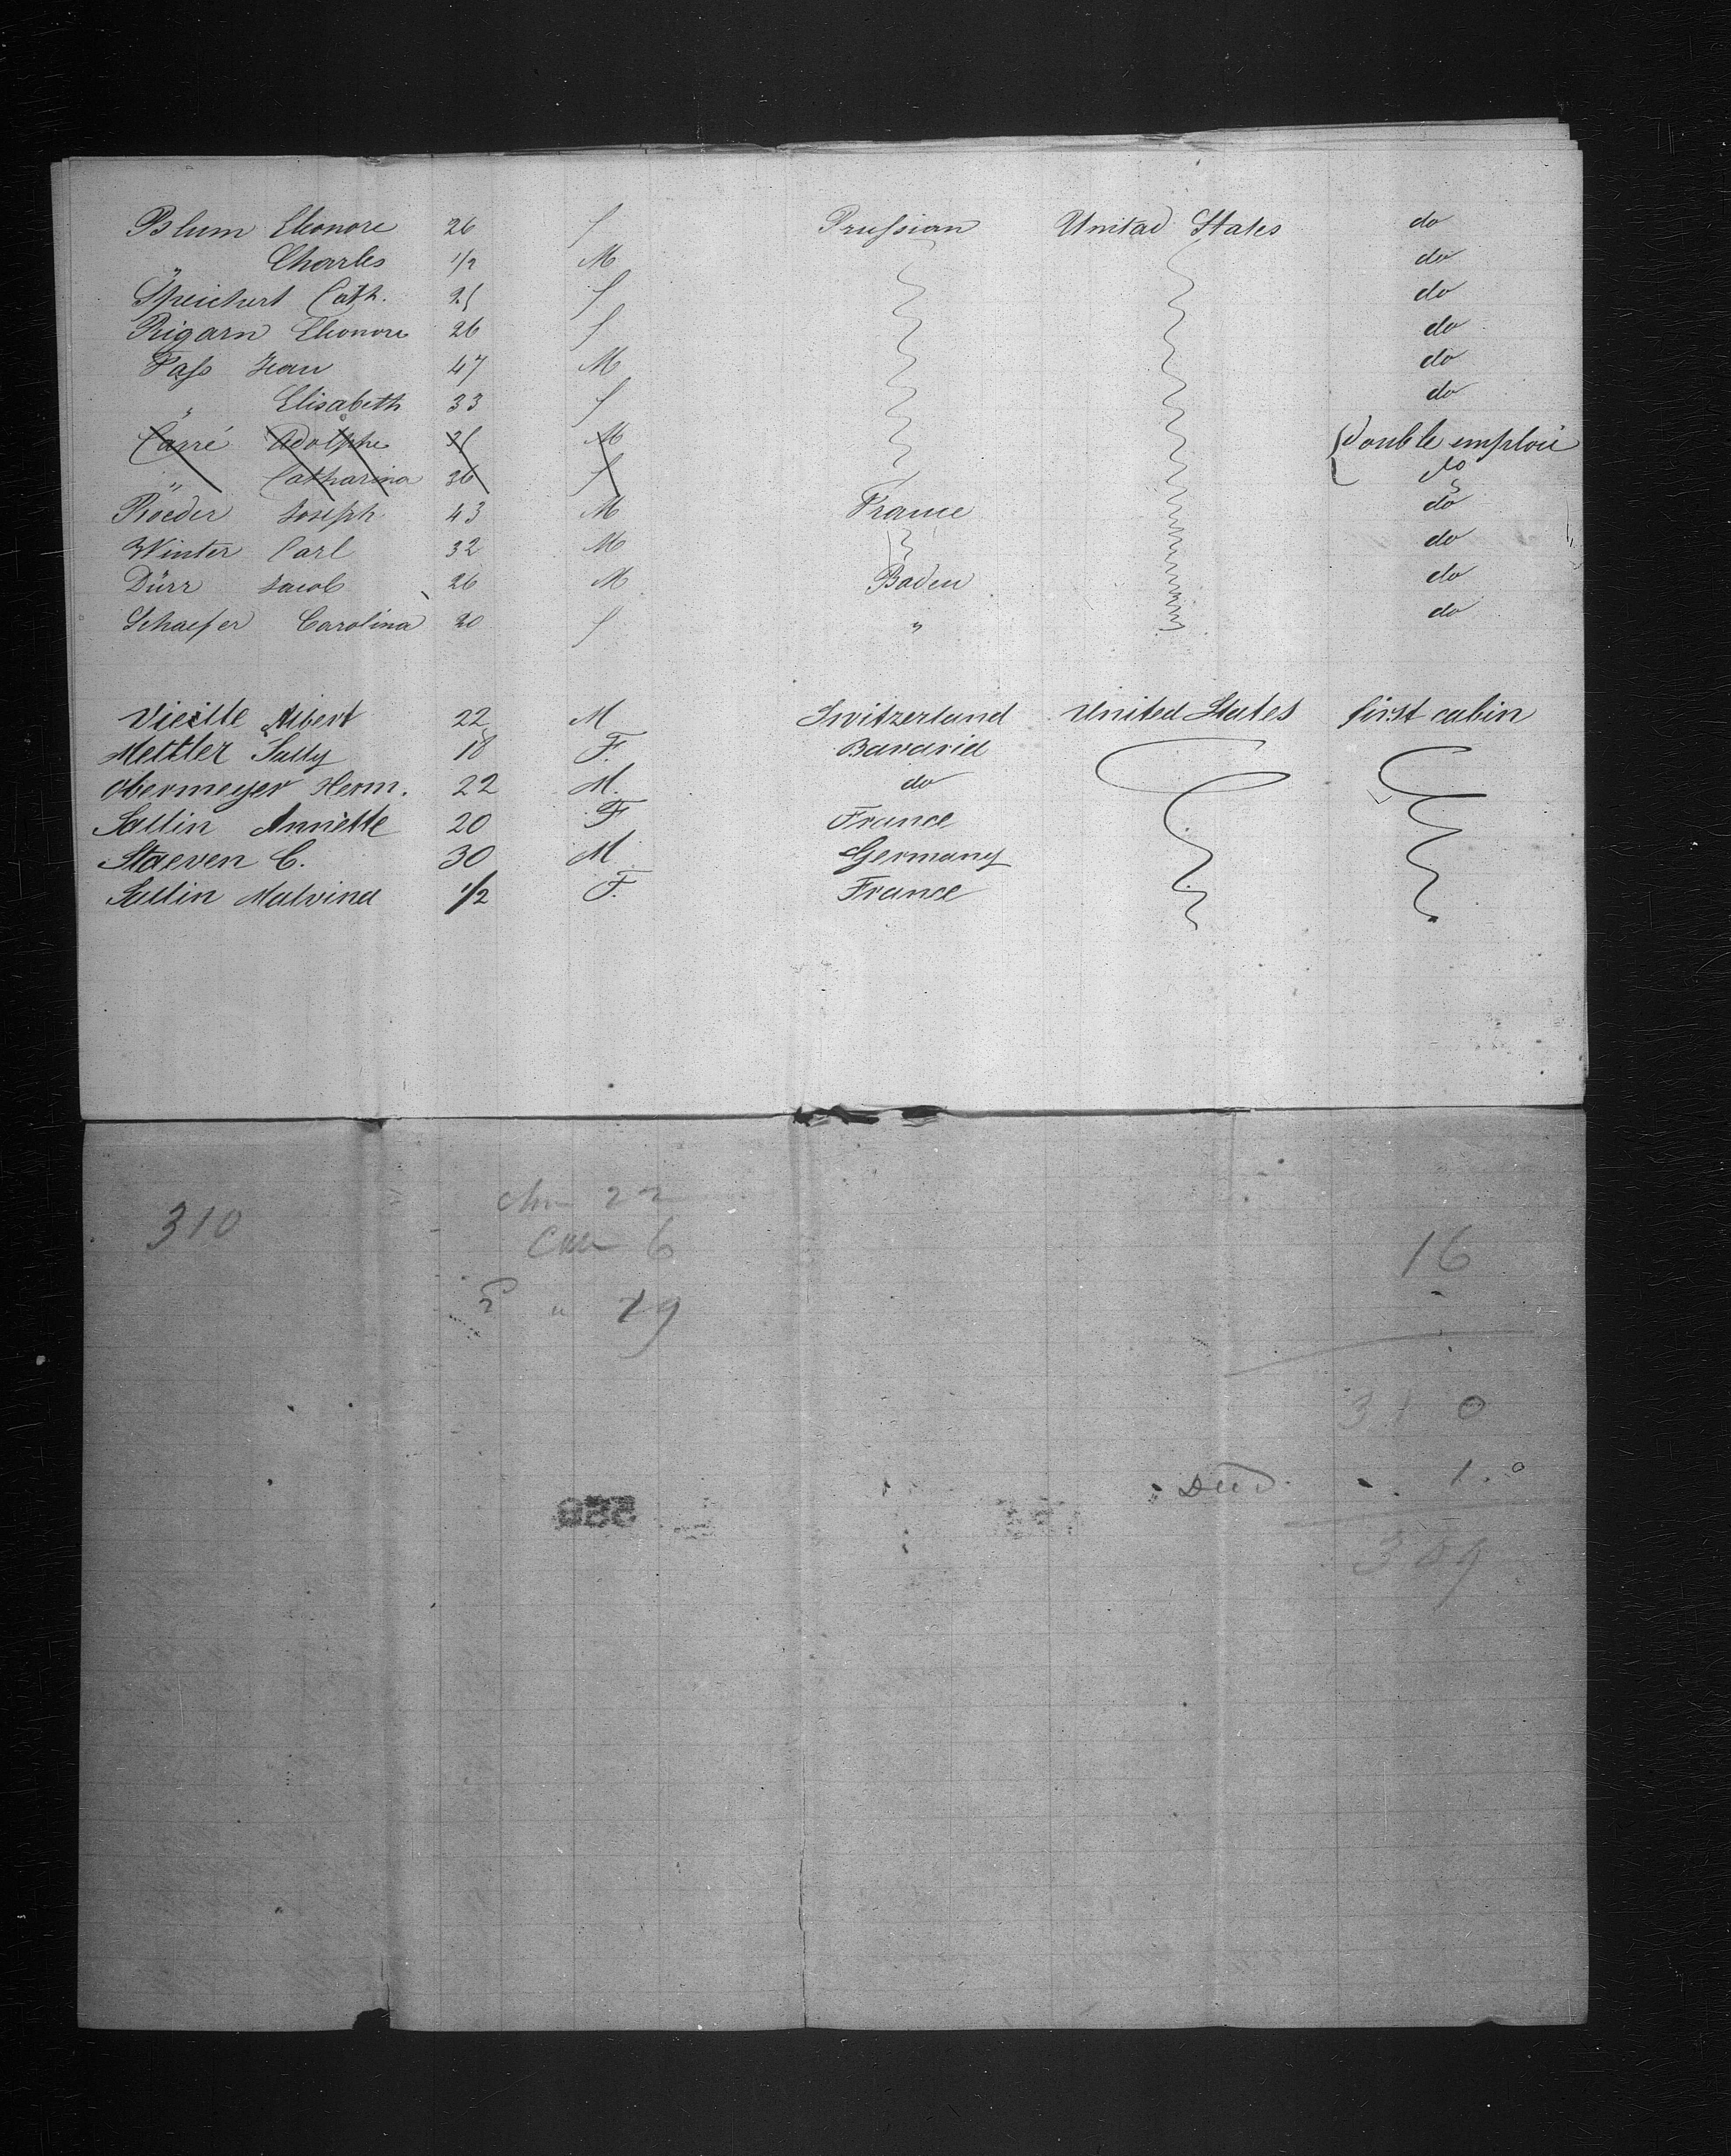 Blum Eleonore 26 f Prussian United States do
" Charles 1/2 M do
Speichert Cath. 25 f do
Rigarn Eleonore 26 f do
Fass Jean 47 M do
" Elisabeth 33 f do
Carré Adolphe 35 M double emploi
" Catharina 36 f do
Roeder Joseph 43 M France do
Winter Carl 32 M do
Dürr Jacob 26 M Baden do
Schaefer Carolina 20 f " do
Vieille Albert 22 M Switzerland United States first cabin
Mettler Sally 18 F. Bavaria
Obermeyer Herm. 22 M. do
Sallin Annette 20 F France
Staeven C. 30 M Germany
Sallin Malvina 1/2 F. France
22
310 6 16
" 19
310
Died 1.
309